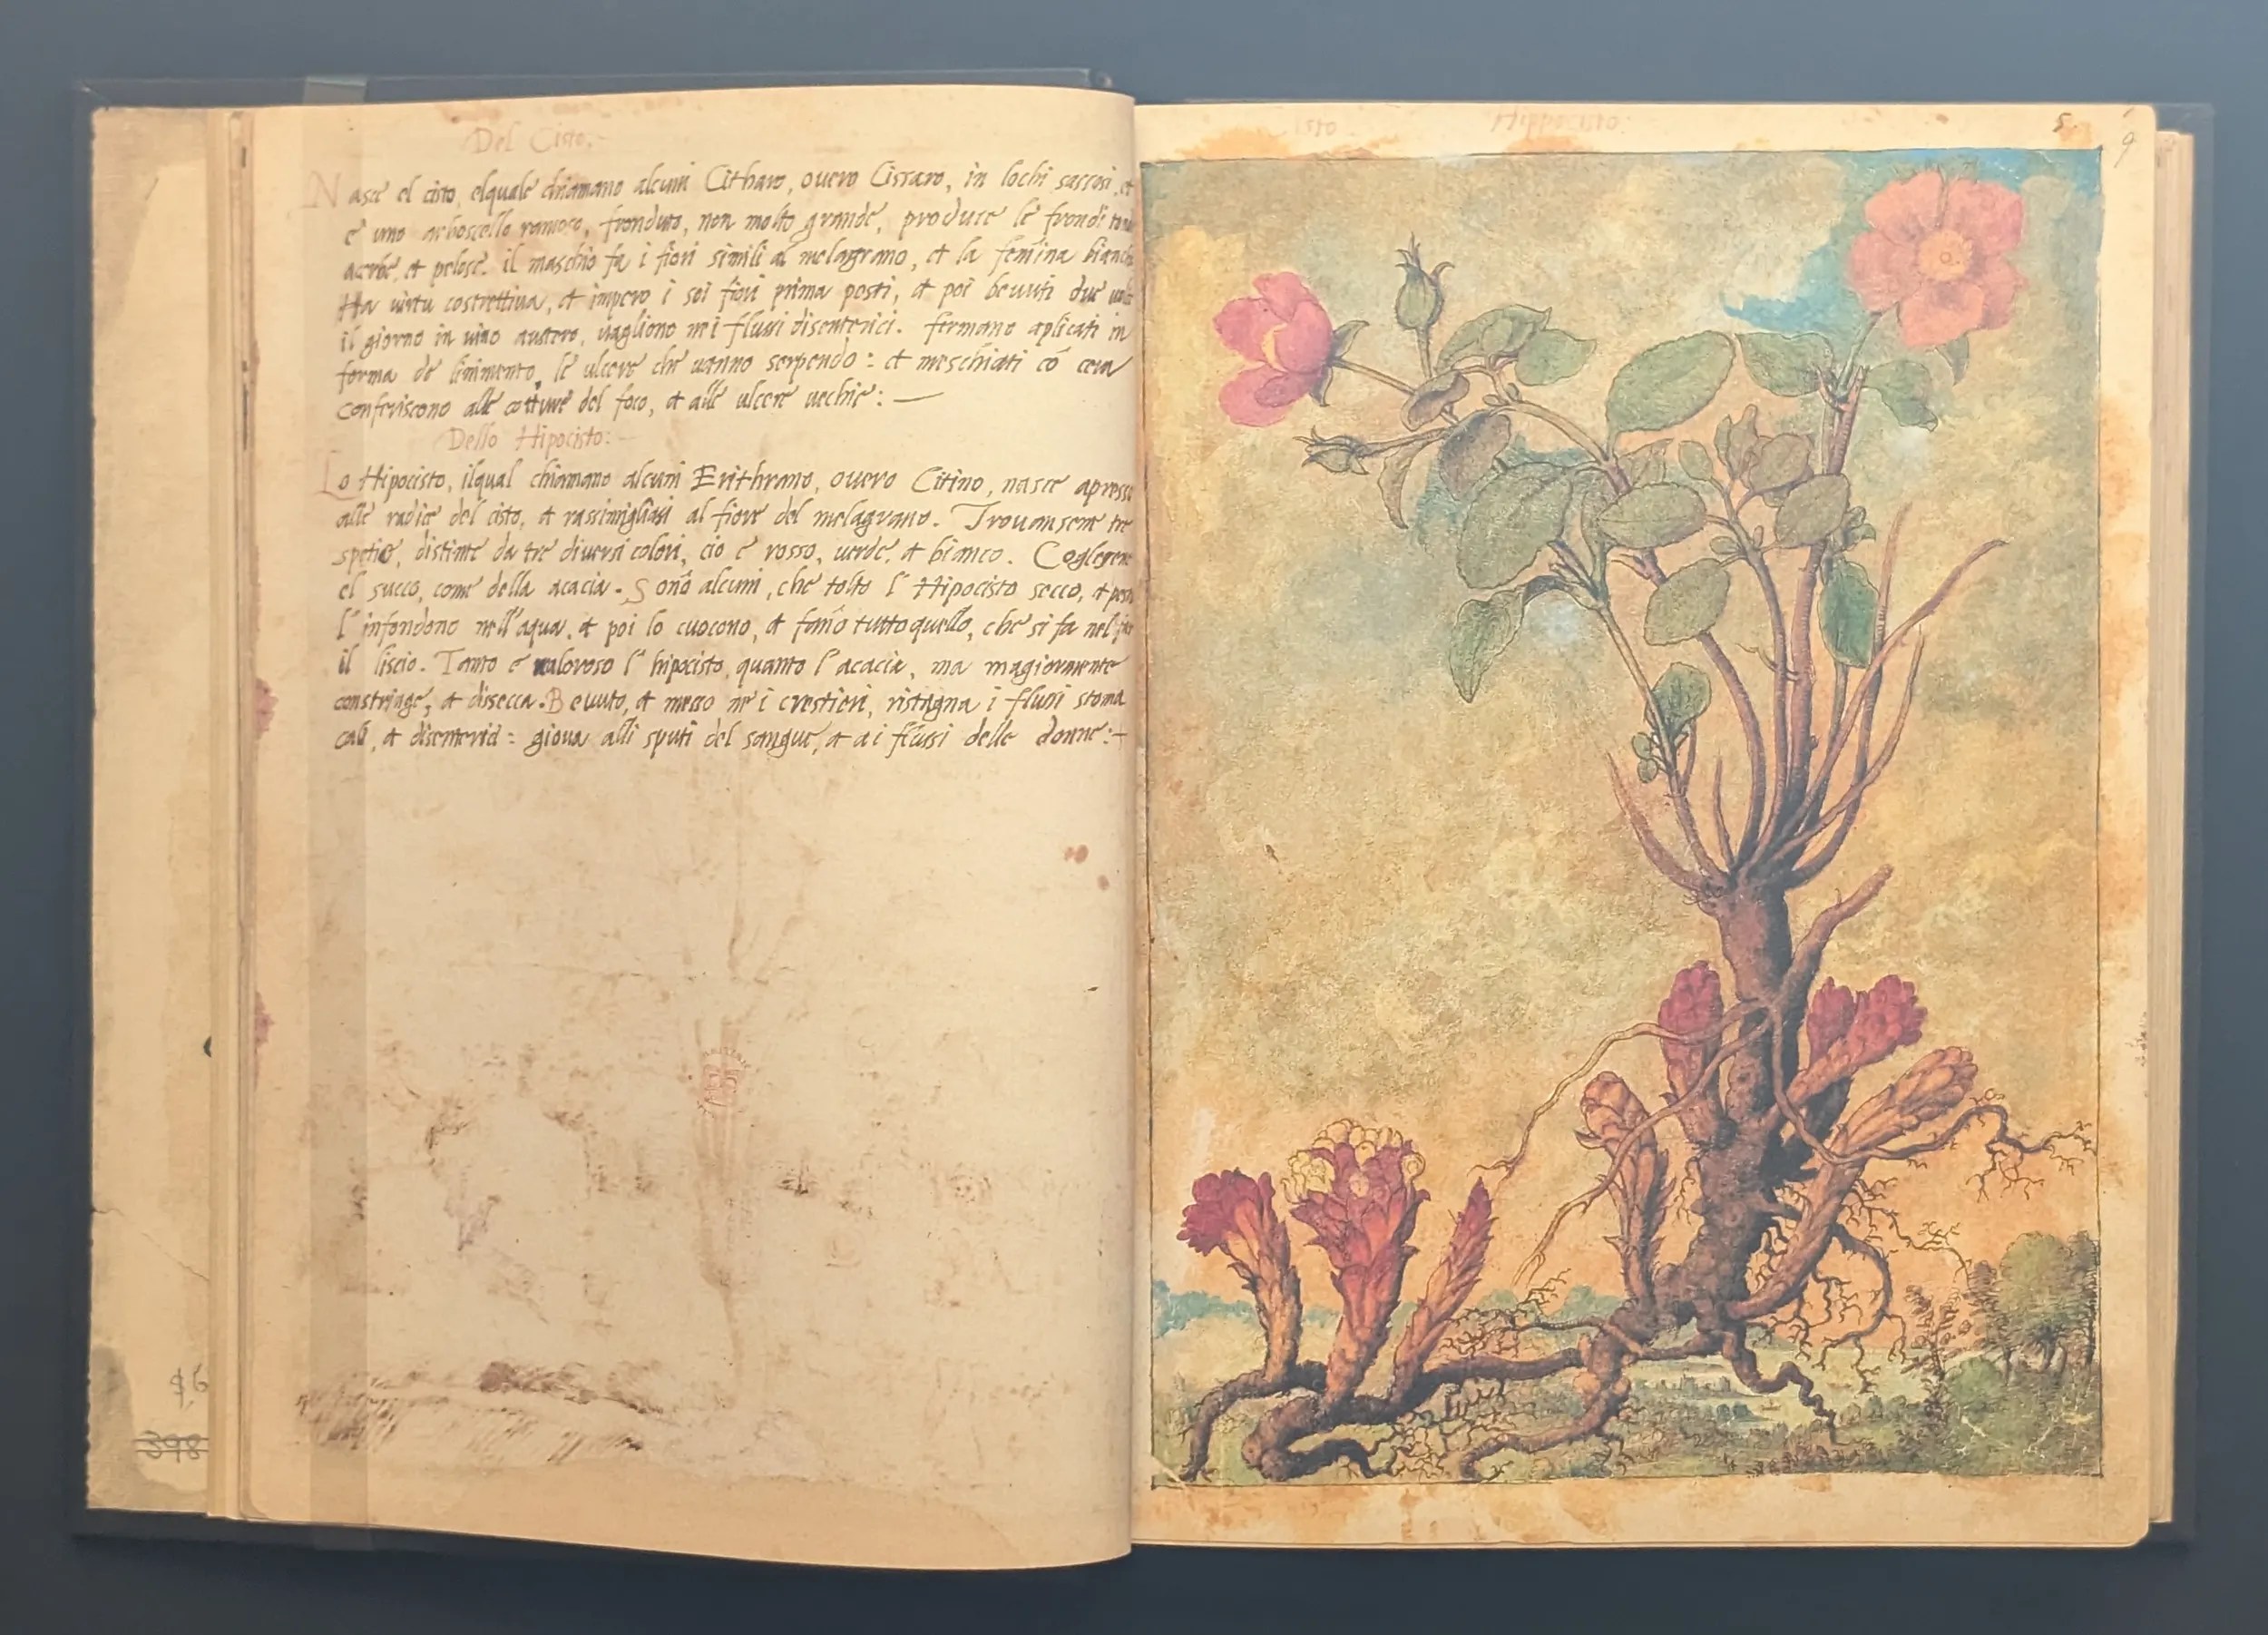 Del Cisto.
Nasce el cisto, elquale chiamano alcuni Citharo, overo Cissaro, in lochi sassosi, et
è uno arboscello ramoso, fronduto, non molto grande, produce le frondi
acerbe, et pelose. il maschio fa i fiori simili al melagrano, et la femina
Ha virtu costrettiva, et impero i soi fiori prima pesti, et poi bevuti due
il giorno in vino austero, vagliono nei flussi disenterici. fermano aplicati in
forma de linimento, le ulcere che vanno serpendo: et meschiati cō cera
conferiscono alle cotture del foco, et alle ulcere vechie:
Dello Hipocisto:
Lo Hipocisto, ilqual chiamano alcuni Erithrano, overo Citino, nasce apresso
alle radice del cisto, et rassimigliasi al fiore del melagrano. Trovansene tre
spetie, distinte da tre diversi colori, cio è rosso, verde, et bianco. Coglesene
el succo, come della acacia. Sonō alcuni, che tolto l'Hipocisto secco, et
l'infondeno nell'aqua, et poi lo cuocono, et fanō tutto quello, che si fa nel
il liscio. Tanto è valoroso l'hipocisto, quanto l'acacia, ma magiormente
constringe, et disecca. Bevuto, et messo ne i crestieri, ristagna i flussi stoma
cali, et disenterici: giova alli sputi del sangue, et a i flussi delle donne:
isto
Hippocisto:
5.
9
46